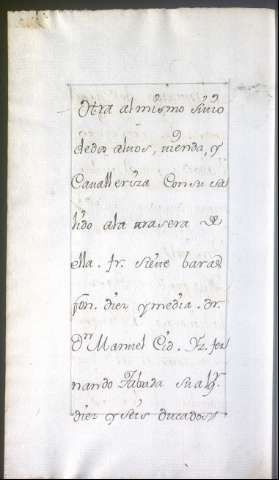 Otra al mismo sitio
de dos altos, vivienda, y
Cavalleriza Con su sa
lido a la trasera de
ella. fr. siete baras
fon. diez y media. Dr.
Dn Manuel Cid. Yz. fer
nando Tabada su alqr.
diez y seis ducados